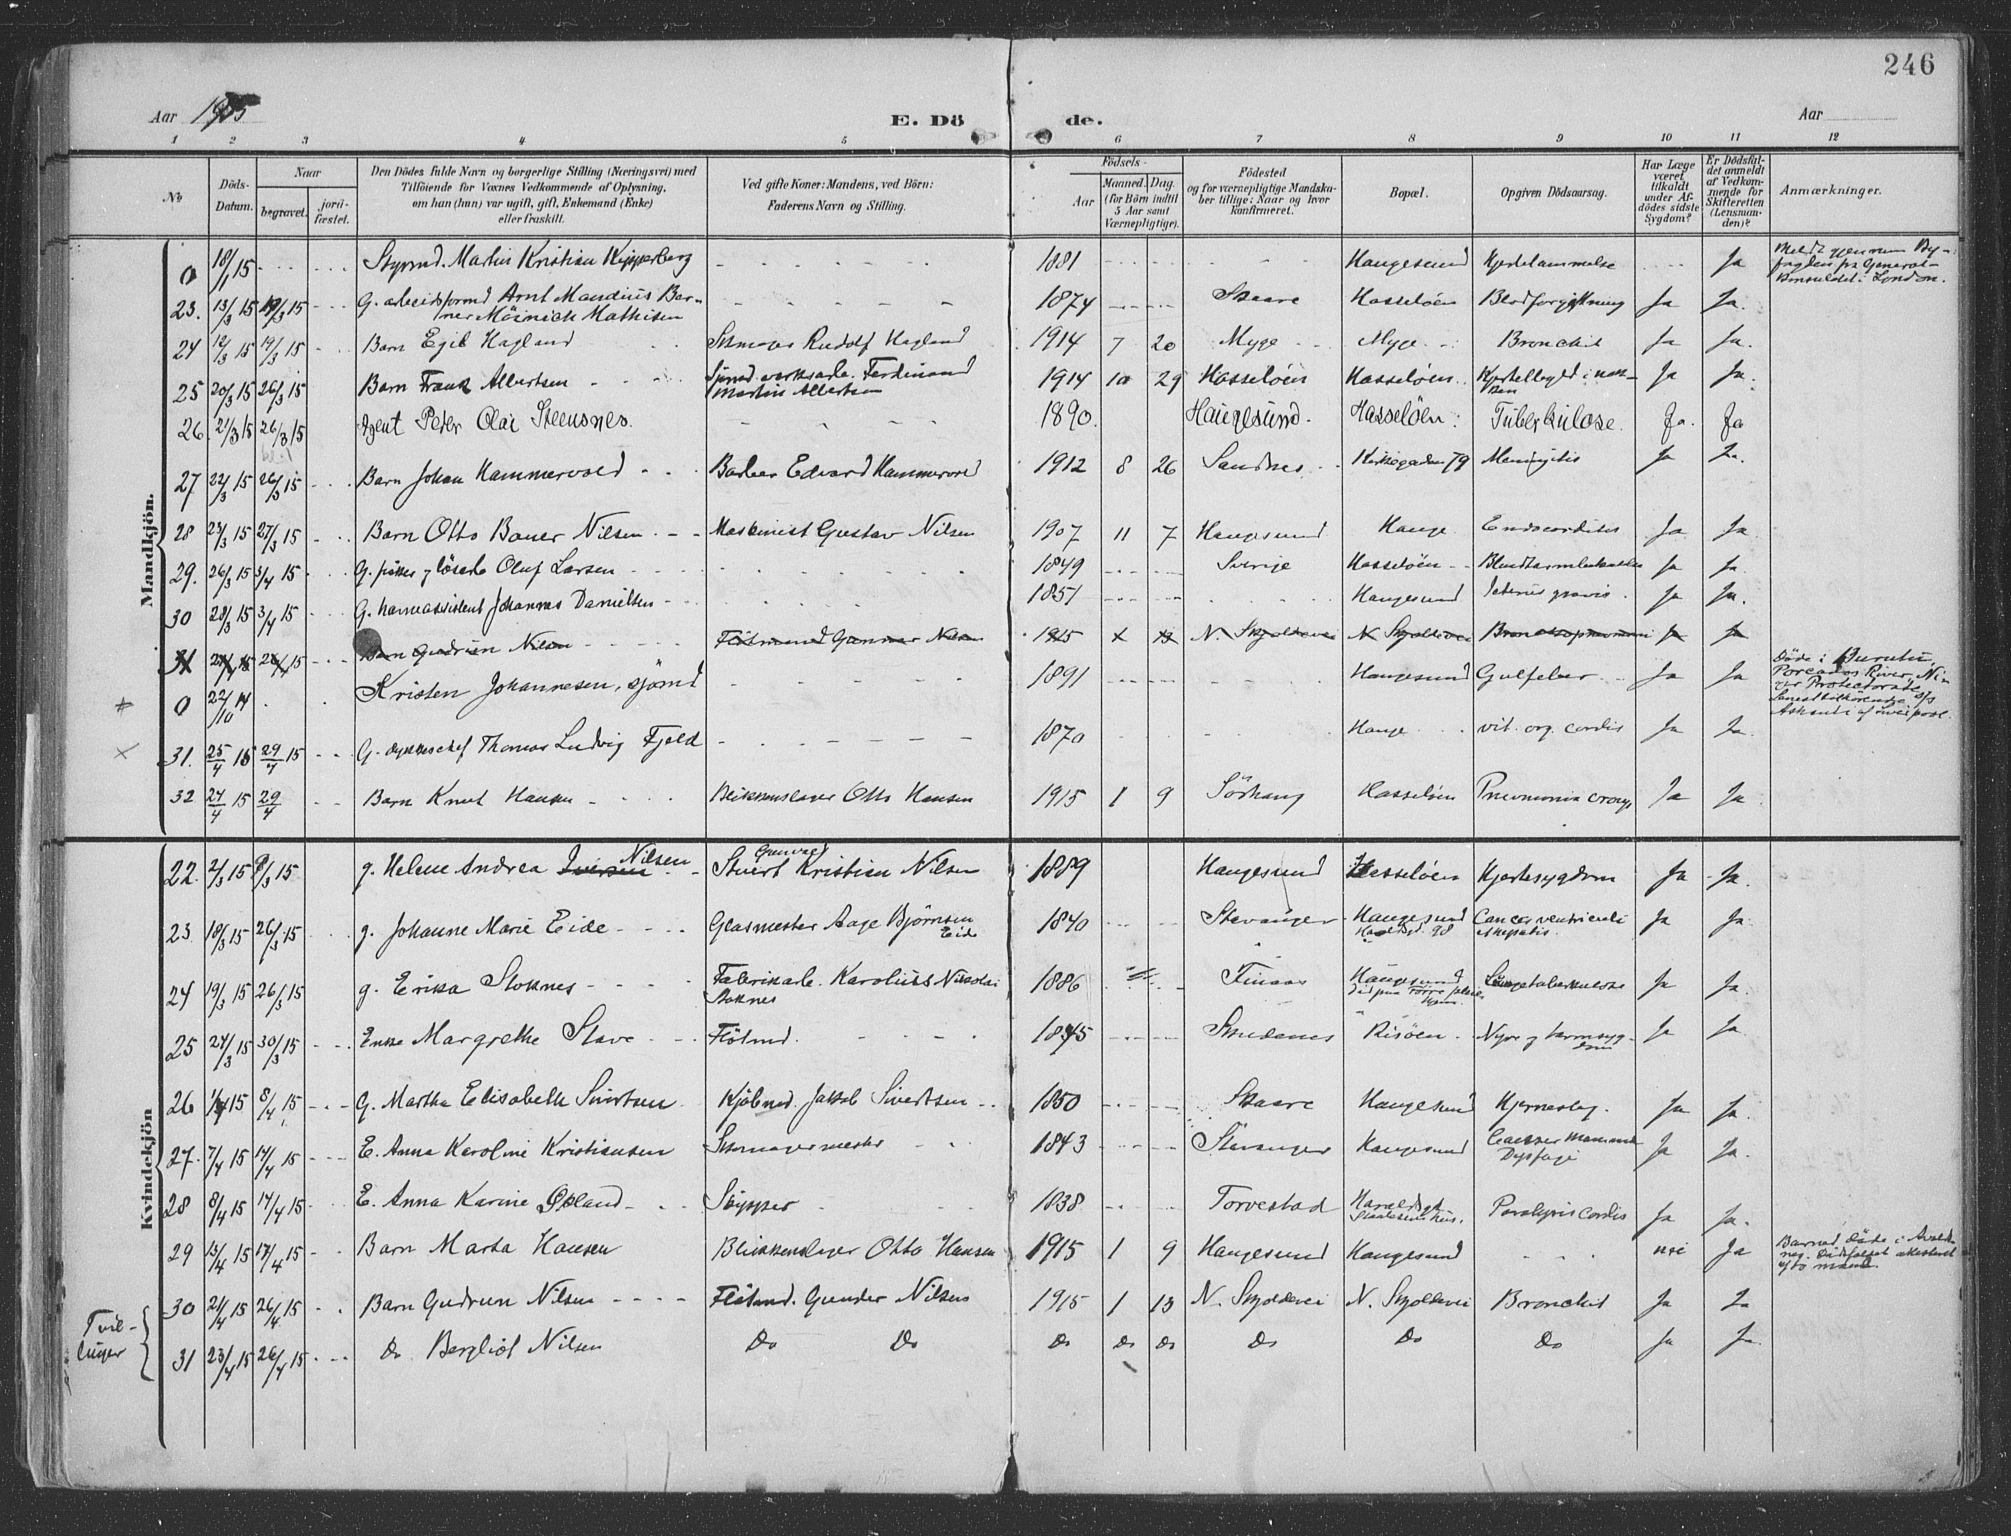 246
Aar 1915
E. Dö de.
Aar
1 2 3 4 5 6 7 8 9 10 11 12
No
Döds-
Datum.
Naar
begravet.
jord-
fæstet.
Den Dödes fulde Navn og borgerlige Stilling (Næringsvei) med
Tilföiende for Voxnes Vedkommende af Oplysning,
om han (hun) var ugift, gift, Enkemand (Enke)
eller fraskilt.
Ved gifte Koner: Mandens, ved Börn:
Faderens Navn og Stilling.
Födsels-
Aar
Maaned. Dag.
(for Börn indtil
5 Aar samt
Værnepligtige).
Födested
og for værnepligtige Mandska-
ber tillige: Naar og hvor
konfirmeret.
Bopæl.
Opgiven Dödsaarsag.
Har Læge
været
tilkaldt
under Af-
dödes sidste
Sygdom?
Er Dödsfal-
det anmeldt
af Vedkom-
mende for
Skifteretten
(Lensman-
den)?
Anmærkninger.
Mandkjön.
0 18/1 15 Styrmd. Martin Kristian Kipperberg 1881 Haugesund Hjertelammelse Ja
Meldt gjennem By-
fogden fra General-
konsulatet i London.
23. 13/3 15 19/3 15 G. arbeidsformd Arnt Mandius Bar-
ner Möinich Mathisen 1874 Skaare Hasseløen Blodforgiftning Ja Ja.
24 12/3 15 19/3 15 Barn Egil Hagland Skomager Rudolf Hagland 1914 7 20 Myge Myge Bronchit Ja Ja.
25 20/3 15 26/3 15 Barn Frank Albertsen Ferdinand
Martin Albertsen 1914 10 29 Hasseløen Hasseløen Ja Ja.
26. 21/3 15 26/3 15 Agent Peter Olai Steensnes. 1890. Haugesund. Hasseløen. Tuberkulose. Ja. Ja
27 22/3 15 26/3 15 Barn Johan Hammervold Barber Edvard Hammervold 1912 8 26 Sandnes Kirkegaden 79 Meningitis Ja Ja.
28 23/3 15 27/3 15 Barn Otto Bauer Nilsen Maskinist Gustav Nilsen 1907 11 7 Haugesund Hauge Endocarditis Ja Ja.
29. 26/3 15 3/4 15 G. fisker og løsarb Oluf Larsen 1849 Sverige Hasseløen Ja Ja.
30 28/3 15 3/4 15 G. havneassistent Johannes Danielsen 1851 Haugesund Icterus gravis. Ja Ja.
31 15 15 Barn Gudrun Nilsen Flötmand Gunnar Nilsen 1915 N. Skjoldevei N. Skjoldevei Bronchopneumoni Ja Ja
0 22/10 14 Kristen Johannesen, sjømd 1891 Haugesund Gulfeber Ja Ja
Döde i Burutu,
Forcados River, Ni-
ger Protectorate
s/s
af Liverpool.
31. 25/4 15 29/4 15 G. Thomas Ludvig Fjeld 1870 Hauge vit. org. cordis Ja Ja.
32 27/4 15 29/4 Barn Knut Hansen Blikkenslager Otto Hansen 1915 1 9 Sörhaug Hasseløen Pneumonia Ja Ja
Kvindekjön
22. 2/3 15 8/3 15 g. Helene Andrea Iversen Nilsen Stuert Kristian Nilsen 1889 Haugesund Hasseløen Hjertesygdom Ja Ja.
23 18/3 15 26/3 15 g. Johanne Marie Eide Glasmester Aage Bjørnsen
Eide 1840 Stavanger Haugesund
98 Cancer ventriculi
Ja Ja.
24 19/3 15 26/3 15 g. Erika Stoknes Fabrikarb. Karolius Nikolai
Stoknes 1886 Finaas Haugesund
Lungetuberkulose Ja Ja.
25 24/3 15 30/3 15 Enke Margrethe Stave Flötmd. 1845 Skudenes Risøen. Nyre og tarmsyg-
dom Ja Ja.
26 1/4 15 8/4 15 g. Martha Elisabeth Sivertsen Kjöbmd. Jakob Sivertsen 1850 Skaare Haugesund Hjerneslag. Ja Ja.
27. 7/4 15 14/4 15 E. Anna Karoline Kristiansen Skomagermester 1843 Stavanger Haugesund Cancer Mammæ
Dysfagi Ja Ja.
28 8/4 15 17/4 15 E. Anna Karine Økland Skipper 1838 Torvestad Haraldsgt.
Paralysis cordis Ja Ja.
29 13/4 15 17/4 15 Barn Marta Hansen Blikkenslager Otto Hansen 1915 1 9 Haugesund Haugesund nei Ja
Barnet döde i Avalds-
nes. Dödsfaldet attesteret
af to mænd.
Tvil-
linger
30 21/4 15 26/4 15 Barn Gudrun Nilsen Flötmd. Gunder Nilsen 1915 1 13 N. Skjoldevei N. Skjoldevei Bronchit Ja Ja
31 23/4 15 26/4 15 Do Bergliot Nilsen Do Do Do Do Do Do Do Do Ja Ja.